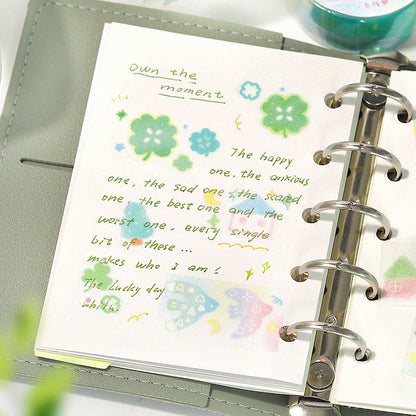 Own the
moment
The happy
one, the anxious
one, the sad one, the scared
one, the best one and the
worst one, every single
bit of those...
makes who I am!
The Lucky day